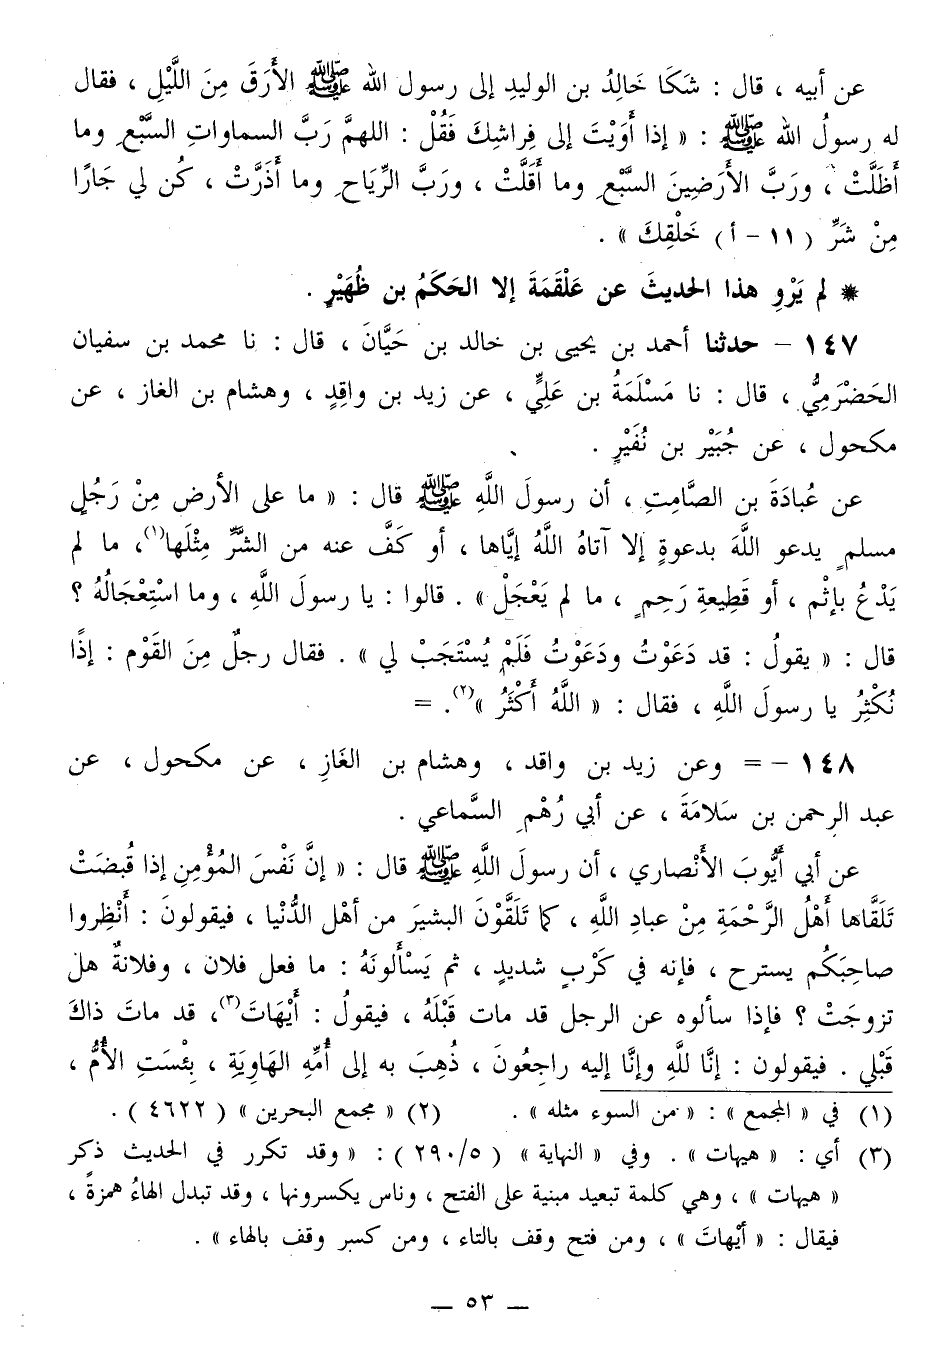 عن أبيه ، قال : شَكَا خَالِدُ بن الوليدِ إلى رسول الله ﷺ الأَرَقَ مِنَ اللَّيْلِ ، فقال
له رسولُ الله ﷺ : « إذا أَوَيْتَ إلى فِراشِكَ فَقُلْ : اللهمَّ رَبَّ السماواتِ السَّبْعِ وما
أَظَلَّتْ ، ورَبَّ الأَرَضِينَ السَّبْعِ وما أَقَلَّتْ ، ورَبَّ الرِّيَاحِ وما أَذَرَّتْ ، كُن لي جَارًا
مِنْ شَرِّ ( ١١ - أ ) خَلْقِكَ » .
* لم يَرْوِ هذا الحديثَ عن عَلْقَمَةَ إلا الحَكَمُ بن ظُهَيْرٍ .
١٤٧ - حدثنا أحمد بن يحيى بن خالد بن حَيَّانَ ، قال : نا محمد بن سفيان
الحَضْرَمِيُّ ، قال : نا مَسْلَمَةُ بن عَلِيٍّ ، عن زيد بن واقِدٍ ، وهشام بن الغاز ، عن
مكحول ، عن جُبَيْر بن نُفَيْرٍ .
عن عُبادَةَ بن الصَّامِتِ ، أن رسولَ اللَّهِ ﷺ قال : « ما على الأرض مِنْ رَجُلٍ
مسلمٍ يدعو اللَّهَ بدعوةٍ إلا آتاهُ اللَّهُ إيَّاها ، أو كَفَّ عنه من الشَّرِّ مِثْلَها(١)، ما لم
يَدْعُ بإثْم ، أو قَطِيعةِ رَحِمٍ ، ما لم يَعْجَلْ » . قالوا : يا رسولَ اللَّهِ ، وما اسْتِعْجَالُهُ ؟
قال : « يقولُ : قد دَعَوْتُ ودَعَوْتُ فَلَمْ يُسْتَجَبْ لي » . فقال رجلٌ مِنَ القَوْم : إذًا
نُكْثِرُ يا رسولَ اللَّهِ ، فقال : « اللَّهُ أَكْثَرُ »(٢). =
١٤٨ - = وعن زيد بن واقد ، وهشام بن الغَازِ ، عن مكحول ، عن
عبد الرحمن بن سَلَامَةَ ، عن أبي رُهْمِ السَّماعي .
عن أبي أَيُّوبَ الأَنْصاري ، أن رسولَ اللَّهِ ﷺ قال : « إنَّ نَفْسَ المُؤْمِنِ إذا قُبِضَتْ
تَلَقَّاها أَهْلُ الرَّحْمَةِ مِنْ عبادِ اللَّهِ ، كما تَلَقَّوْنَ البشيرَ من أهْل الدُّنْيا ، فيقولونَ : أَنْظِروا
صاحِبَكُم يسترح ، فإنه في كَرْبٍ شديدٍ ، ثم يَسْأَلونَهُ : ما فعل فلان ، وفلانةٌ هل
تزوجَتْ ؟ فإذا سألوه عن الرجل قد مات قَبْلَهُ ، فيقولُ : أَيْهَاتَ(٣)، قد ماتَ ذاكَ
قَبْلي . فيقولون : إنَّا للَّهِ وإنَّا إليه راجِعُونَ ، ذُهِبَ به إلى أُمِّهِ الهَاوِيَةِ ، بِئْسَتِ الأُمُّ ،
(١) في « المجمع » : « من السوء مثله » . (٢) « مجمع البحرين » ( ٤٦٢٢ ) .
(٣) أي : « هيهات » . وفي « النهاية » ( ٢٩٠/٥ ) : « وقد تكرر في الحديث ذكر
« هيهات » ، وهي كلمة تبعيد مبنية على الفتح ، وناس يكسرونها ، وقد تبدل الهاءُ همزةً ،
فيقال : « أيْهاتَ » ، ومن فتح وقف بالتاء ، ومن كسر وقف بالهاء » .
— ٥٣ —